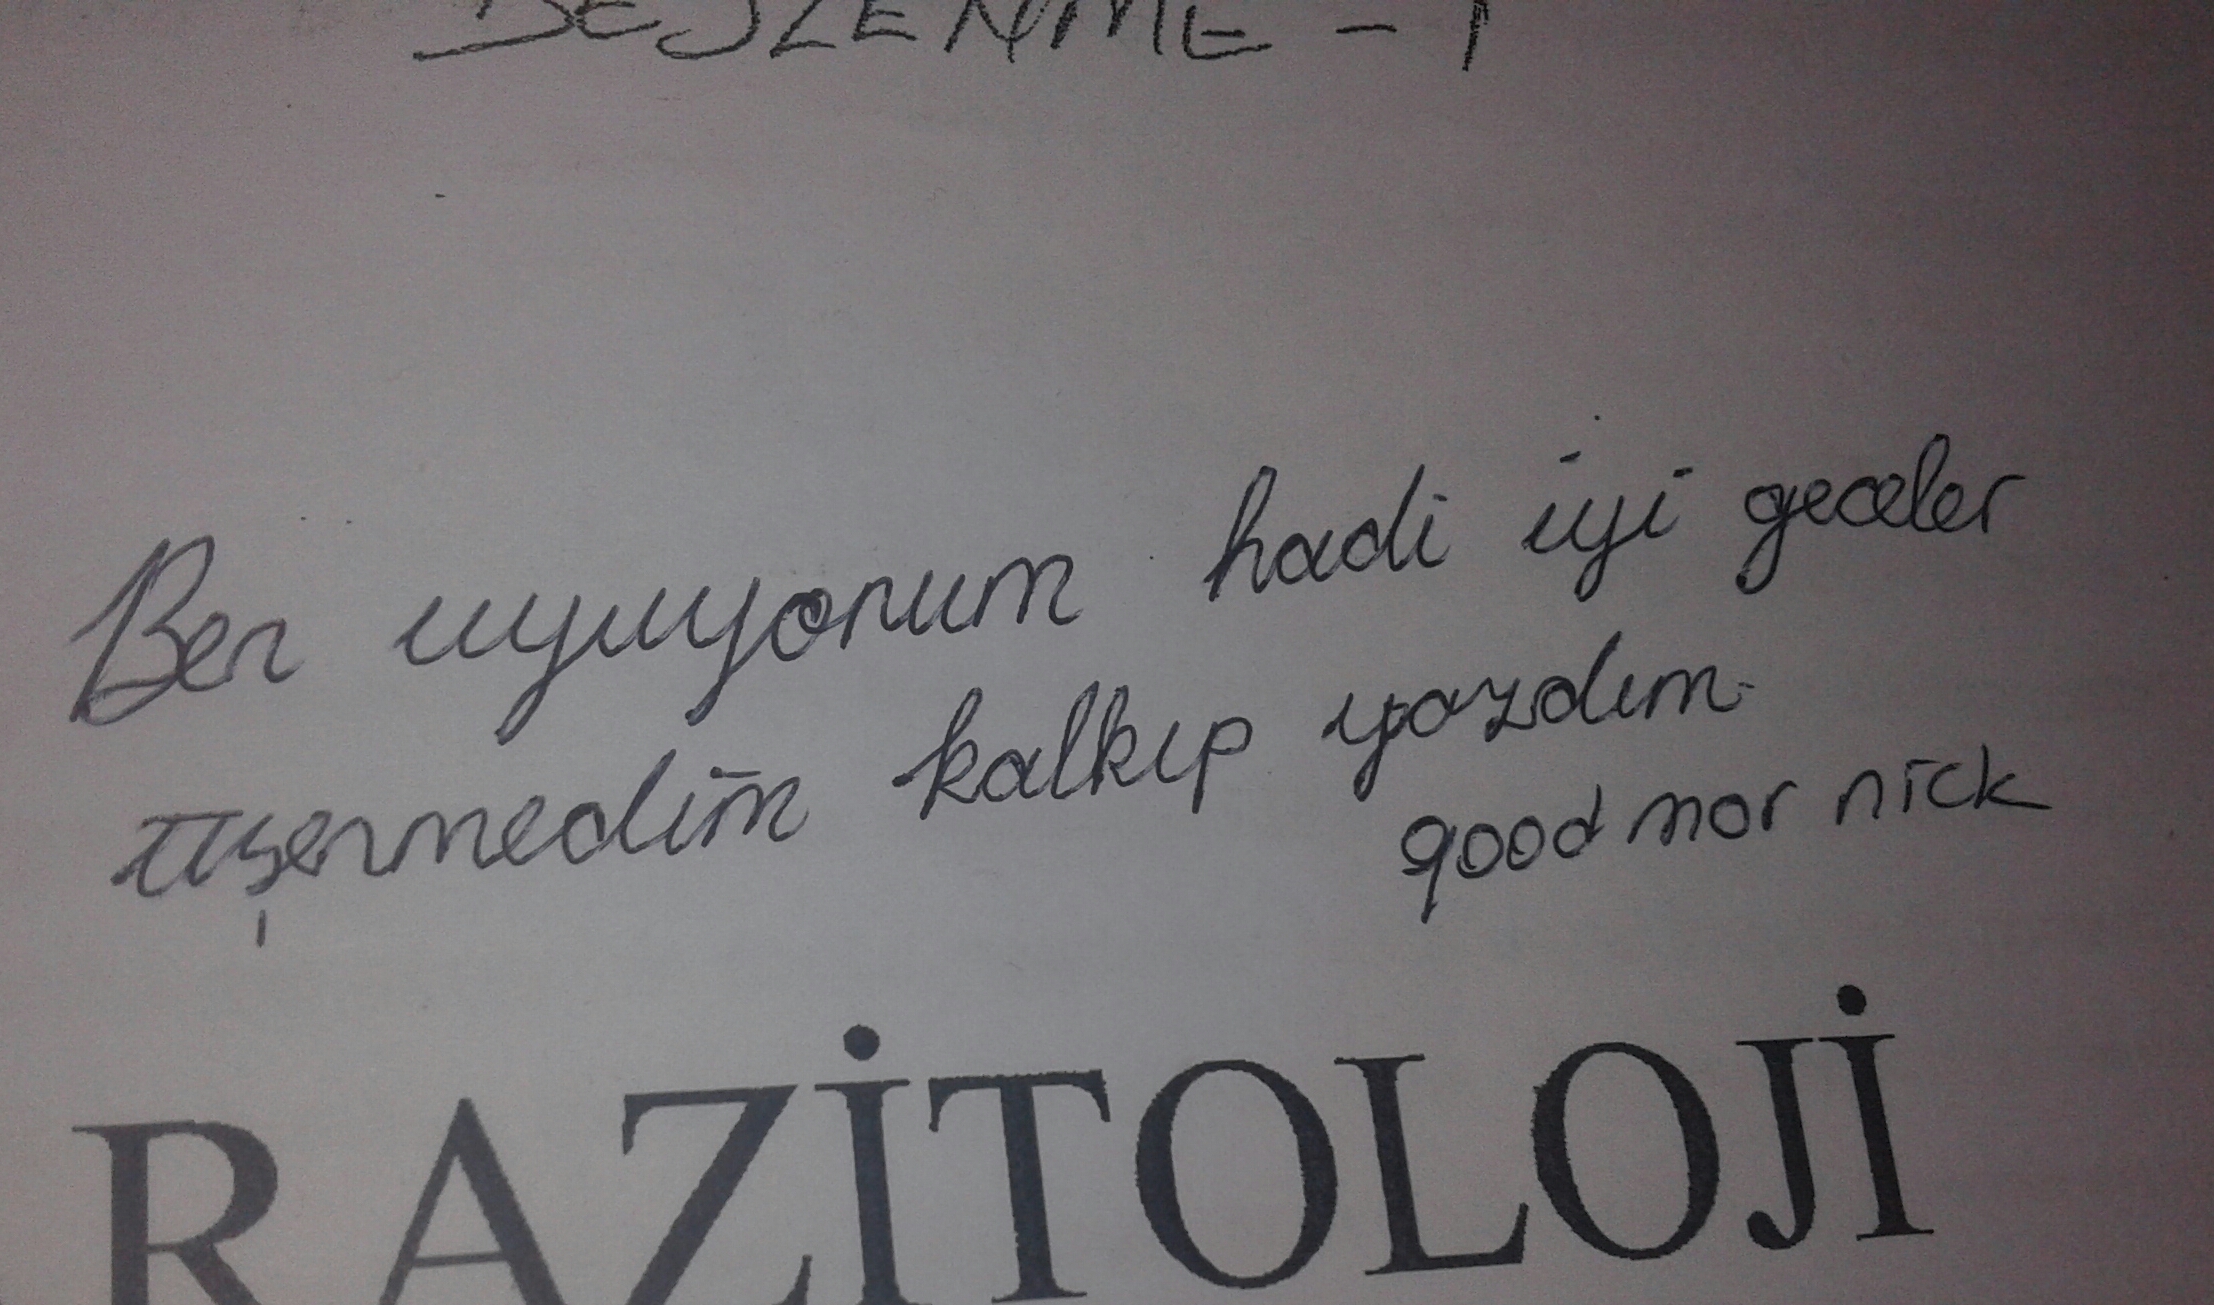 BESLENME - 1
Ben uyuyorum hadi iyi geceler
üşenmedim kalkıp yazdım.
good mor nick
RAZİTOLOJİ